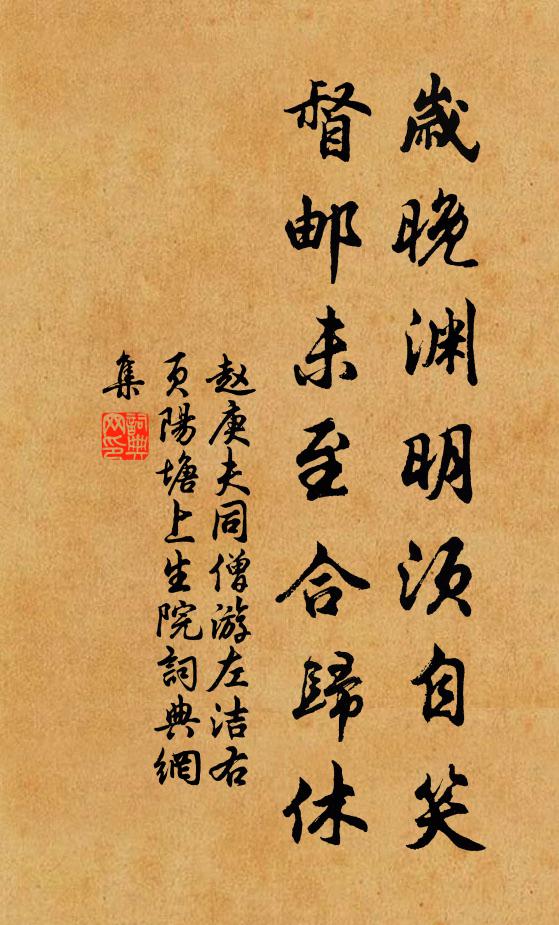 歲晚渊明须自笑
督邮未至合歸休
赵庚夫同僧游左洁右
页陽塘上生院詞典網
集
詞典
网印